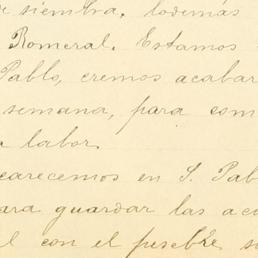 siembra, lodemás
Romeral. Estamos
Pablo, cremos acabar
semana, para com
labor.
carecemos en S. Pab
ara guardar las ac
l con el pesebre s